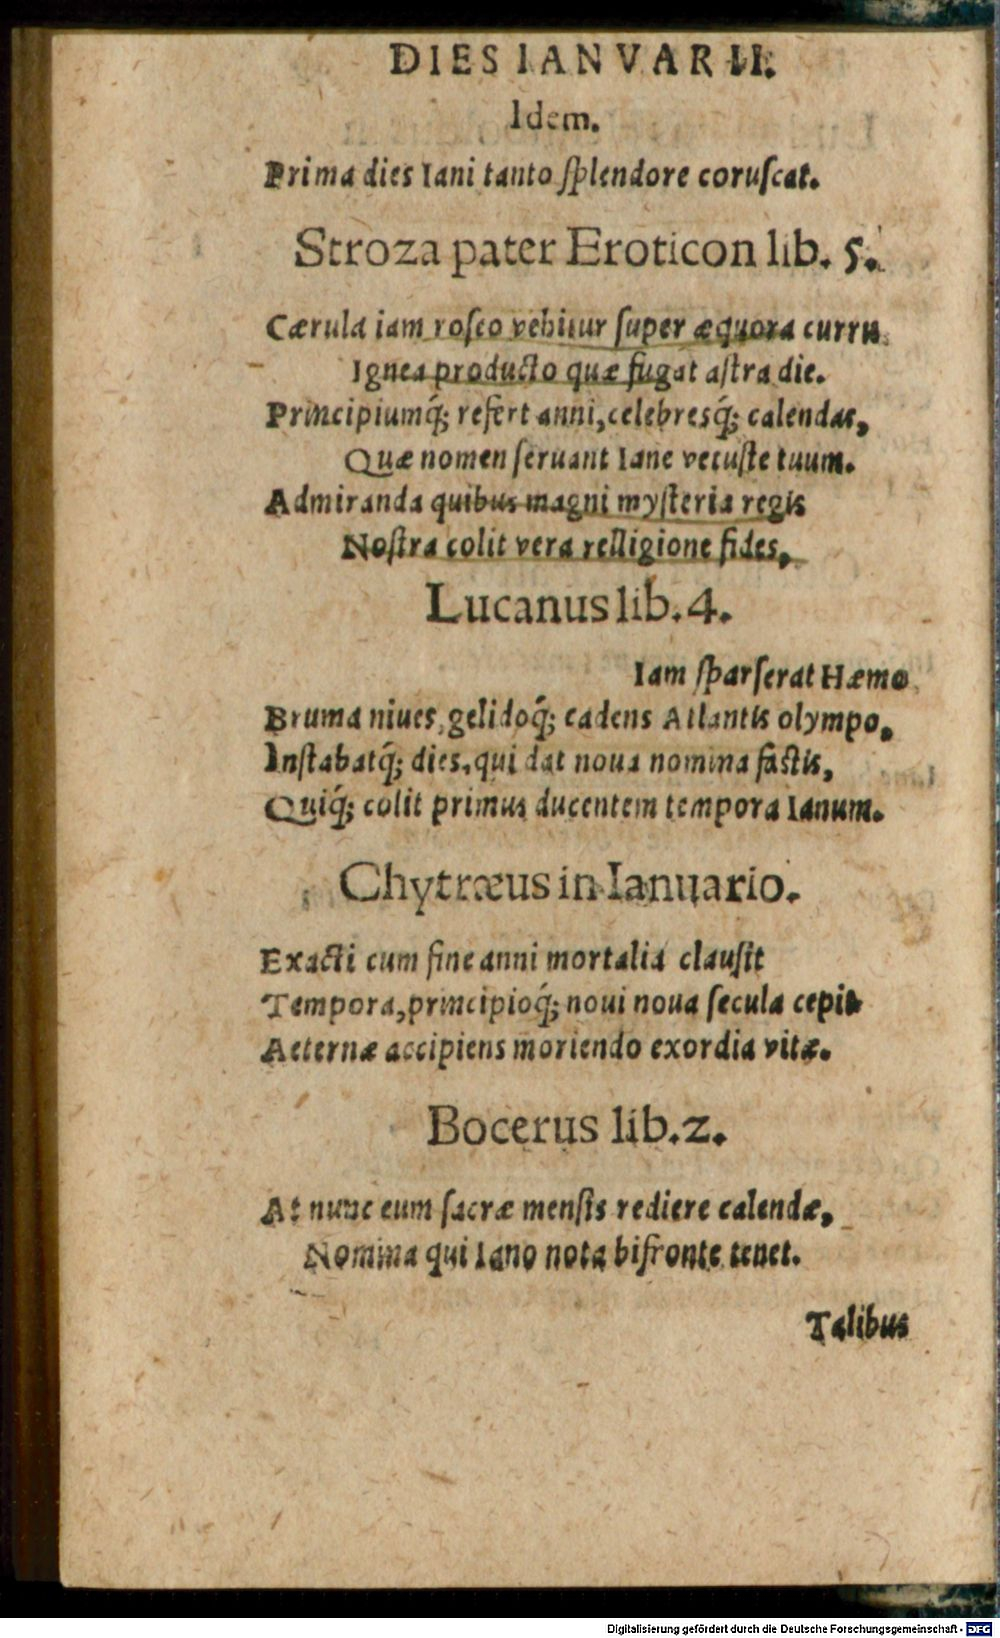 DIES IANVARII.
Idem.
Prima dies Iani tanto ſplendore coruſcat.
Stroza pater Eroticon lib. 5.
Cærula iam roſeo vehitur ſuper æquora curru
Ignea producto quæ fugat aſtra die.
Principiumq́; refert anni, celebresq́; calendas,
Quæ nomen ſeruant Iane vetuſte tuum.
Admiranda quibus magni myſteria regis
Noſtra colit vera relligione fides,
Lucanus lib. 4.
Iam ſparſerat Hæmo
Bruma niues, gelidoq́; cadens Atlantis olympo,
Inſtabatq́; dies, qui dat noua nomina faſtis,
Quiq́; colit primus ducentem tempora Ianum.
Chytræus in Ianuario.
Exacti cum fine anni mortalia clauſit
Tempora, principioq́; noui noua ſecula cepit
Aeternæ accipiens moriendo exordia vitæ.
Bocerus lib. 2.
At nunc eum ſacræ menſis rediere calendæ,
Nomina qui Iano nota bifronte tenet.
Talibus
Digitalisierung gefördert durch die Deutsche Forschungsgemeinschaft - DFG